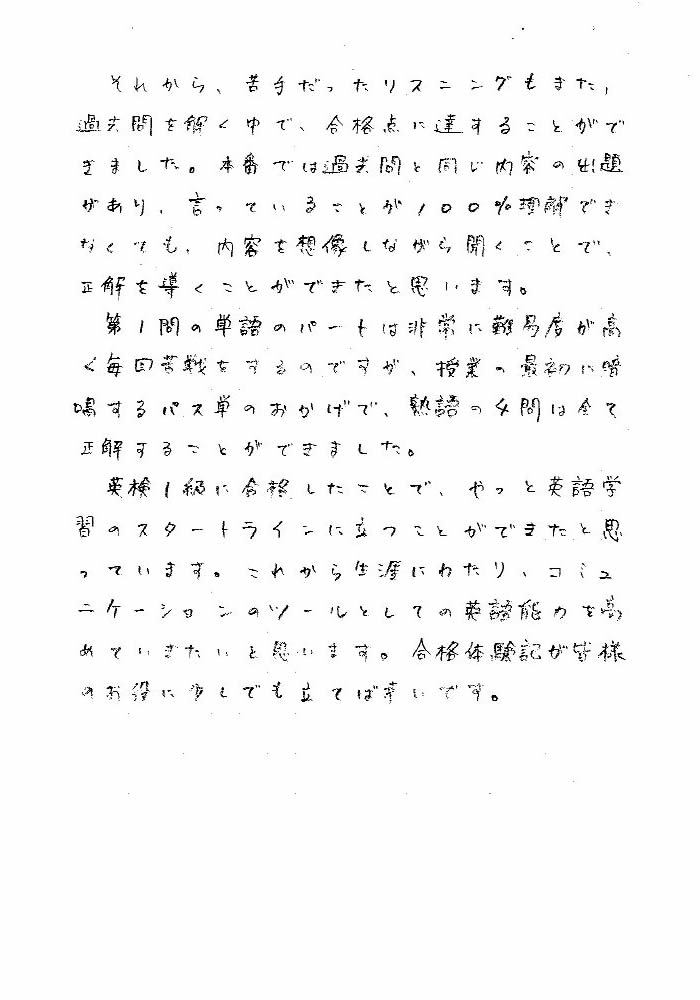 それから、苦手だったリスニングもまた、
過去問を解く中で、合格点に達することがで
きました。本番では過去問と同じ内容の出題
があり、言っていることが100%理解でき
なくても、内容を想像しながら聞くことで、
正解を導くことができたと思います。
第1問の単語のパートは非常に難易度が高
く毎回苦戦をするのですが、授業の最初に暗
唱するパス単のおかげで、熟語の4問は全て
正解することができました。
英検1級に合格したことで、やっと英語学
習のスタートラインに立つことができたと思
っています。これから生涯にわたり、コミュ
ニケーションのツールとしての英語能力を高
めていきたいと思います。合格体験記が皆様
のお役に少しでも立てば幸いです。